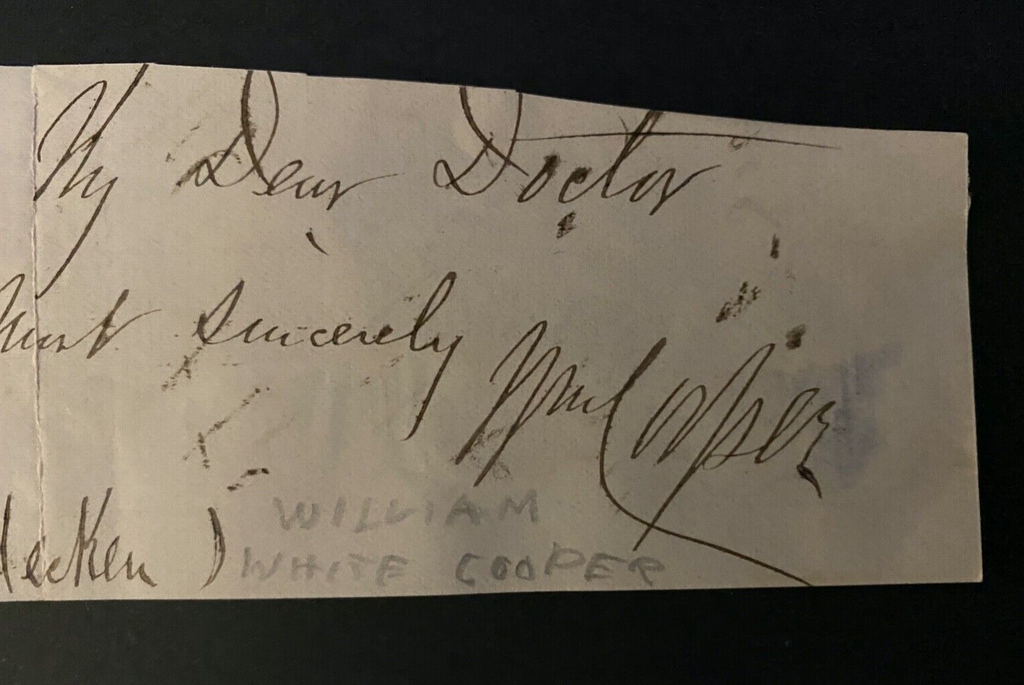 My Dear Doctor
Most sincerely Wm Cooper
ecken )
WILLIAM
WHITE COOPER